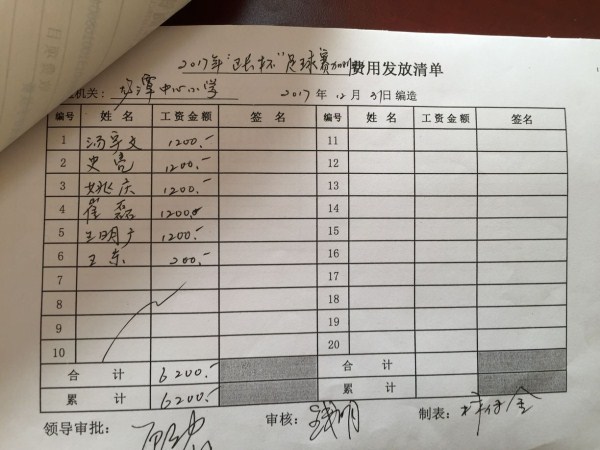 2017年"区长杯"足球赛 费用发放清单
机关: 潭中心小学 2017年12月31日编造
编号 姓名 工资金额 签名 编号 姓名 工资金额 签名
1 汤学文 1200.- 11
2 史亮 1200.- 12
3 姚庆 1200.- 13
4 崔磊 1200.- 14
5 王明 1200.- 15
6 王东 200.- 16
7 17
8 18
9 19
10 20
合计 6200.- 合计
累计 6200.- 累计
领导审批: 审核: 钱明 制表: